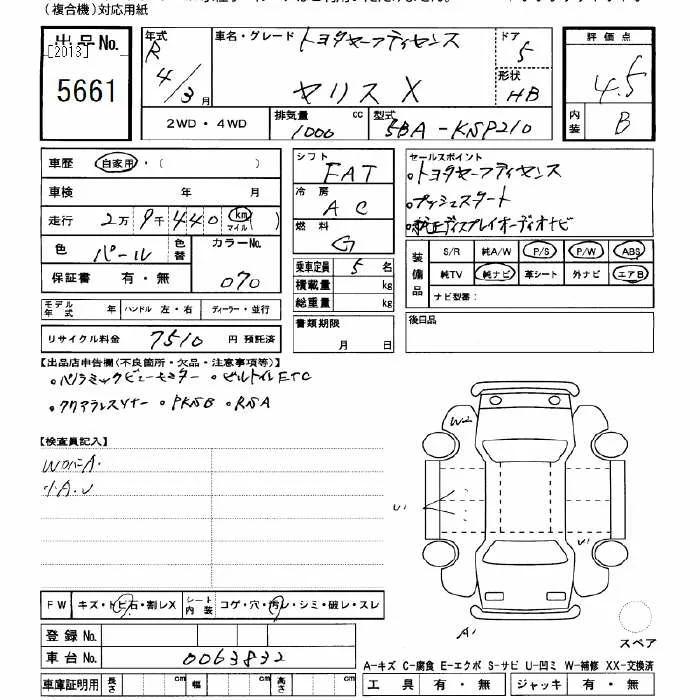 (複合機)対応用紙
出品No.
[2013]
5661
年式
R
4/3月
車名・グレード
トヨタセーフティセンス
ヤリス X
ドア
5
形状
HB
2WD・4WD
排気量
1000 cc
型式
5BA-KSP210
評価点
4.5
内装
B
車歴 自家用・( )
車検 年 月
走行 2万9千440 (km マイル)
色 パール 色替 カラーNo. 070
保証書 有・無
モデル年式 年 ハンドル 左・右 ディーラー・並行
リサイクル料金 7510 円 預託済
シフト
FAT
冷房
AC
燃料
G
乗車定員 5 名
積載量 kg
総重量 kg
書類期限
月 日
セールスポイント
・トヨタセーフティセンス
・プッシュスタート
・純正ディスプレイオーディオナビ
装備品
S/R 純A/W P/S P/W ABS
純TV 純ナビ 革シート 外ナビ エアB
ナビ型番:
後日品
【出品店申告欄(不良箇所・欠品・注意事項等)】
・パノラミックビューモニター ・ビルトインETC
・クリアランスソナー ・PKSB ・RSA
【検査員記入】
A・U
FW キズ・トビ石・割レX シート内装 コゲ・穴・汚レ・シミ・破レ・スレ
登録No.
車台No. 0063832
車庫証明用 長さ cm 幅 cm 高さ cm
W2
U1
U1
A1
スペア
A-キズ C-腐食 E-エクボ S-サビ U-凹ミ W-補修 XX-交換済
工具 有・無 ジャッキ 有・無